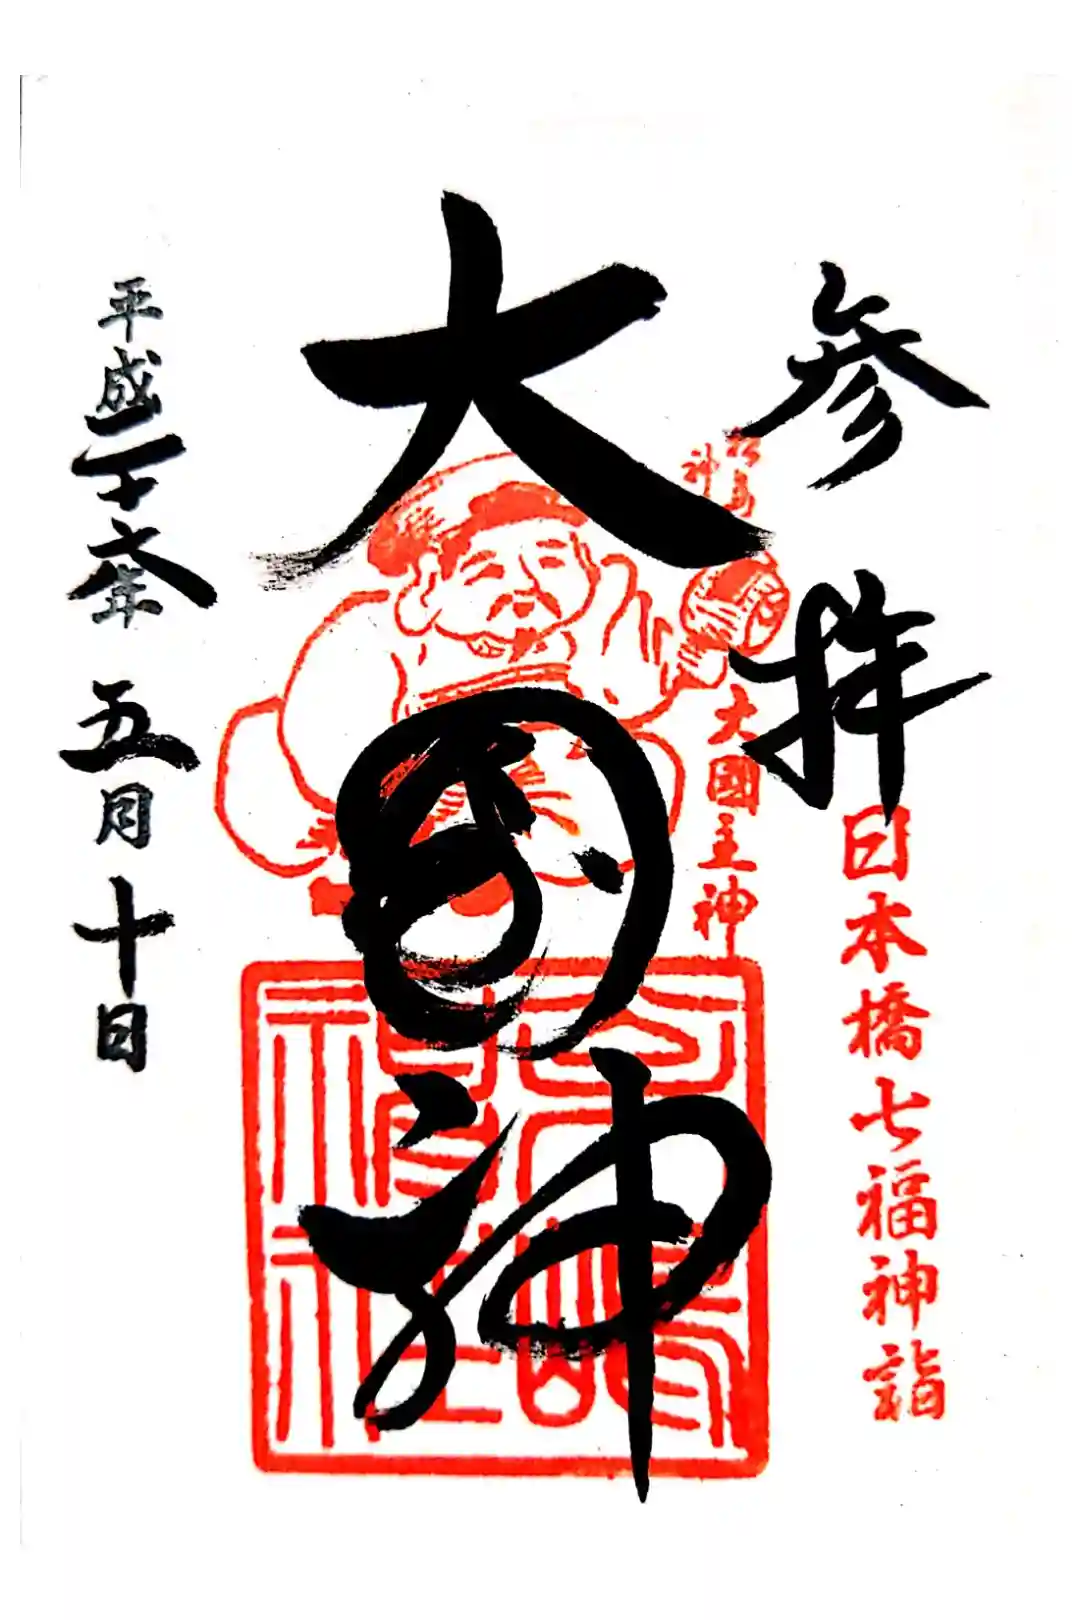 参拝
日本橋七福神詣
大國主神
大国神
松島神社
平成二十六年五月十日